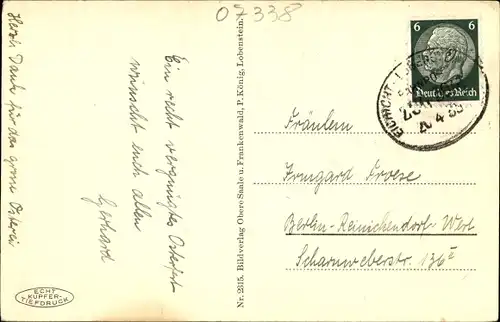 07338
Herzl. Dank für das grosse Osterei
Ein recht vergnügtes Osterfest
wünscht euch allen
Gerhard
ECHT
KUPFER-
TIEFDRUCK
Nr. 2315. Bildverlag Obere Saale u. Frankenwald, P. König, Lobenstein.
6 6
Deutsches Reich
EICHICHT
ZUG
20 4
Fräulein
Irmgard Froese
Berlin-Reinickendorf-West
Scharnweberstr. 136 I